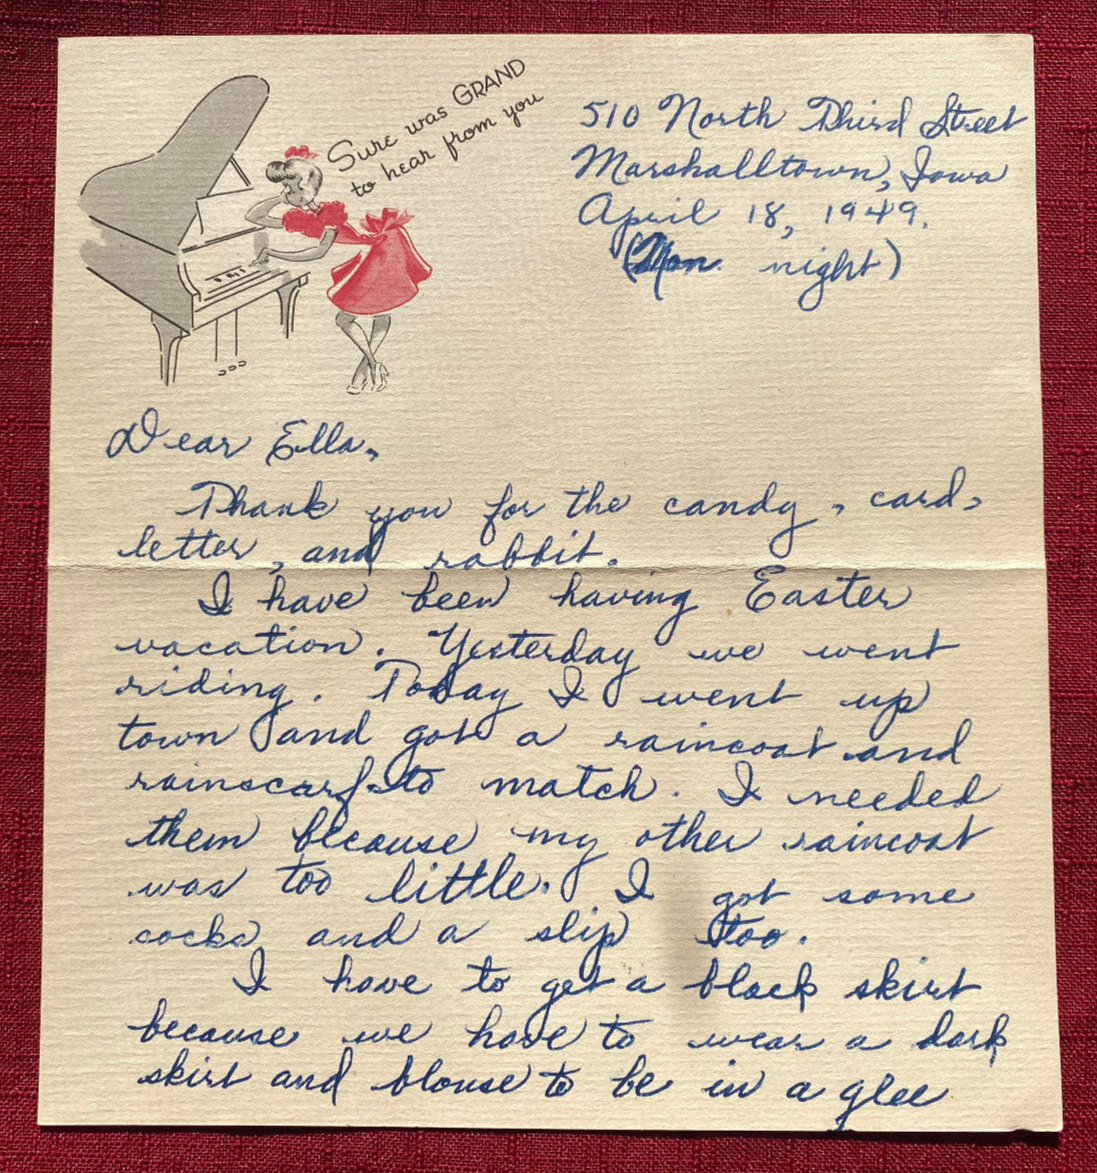 Sure was GRAND
to hear from you
510 North Third Street
Marshalltown, Iowa
April 18, 1949.
(Mon. night)
Dear Ella,
Thank you for the candy, card,
letter, and rabbit.
I have been having Easter
vacation. Yesterday we went
riding. Today I went up
town and got a raincoat and
rainscarf to match. I needed
them because my other raincoat
was too little. I got some
socks and a slip too.
I have to get a black skirt
because we have to wear a dark
skirt and blouse to be in a glee